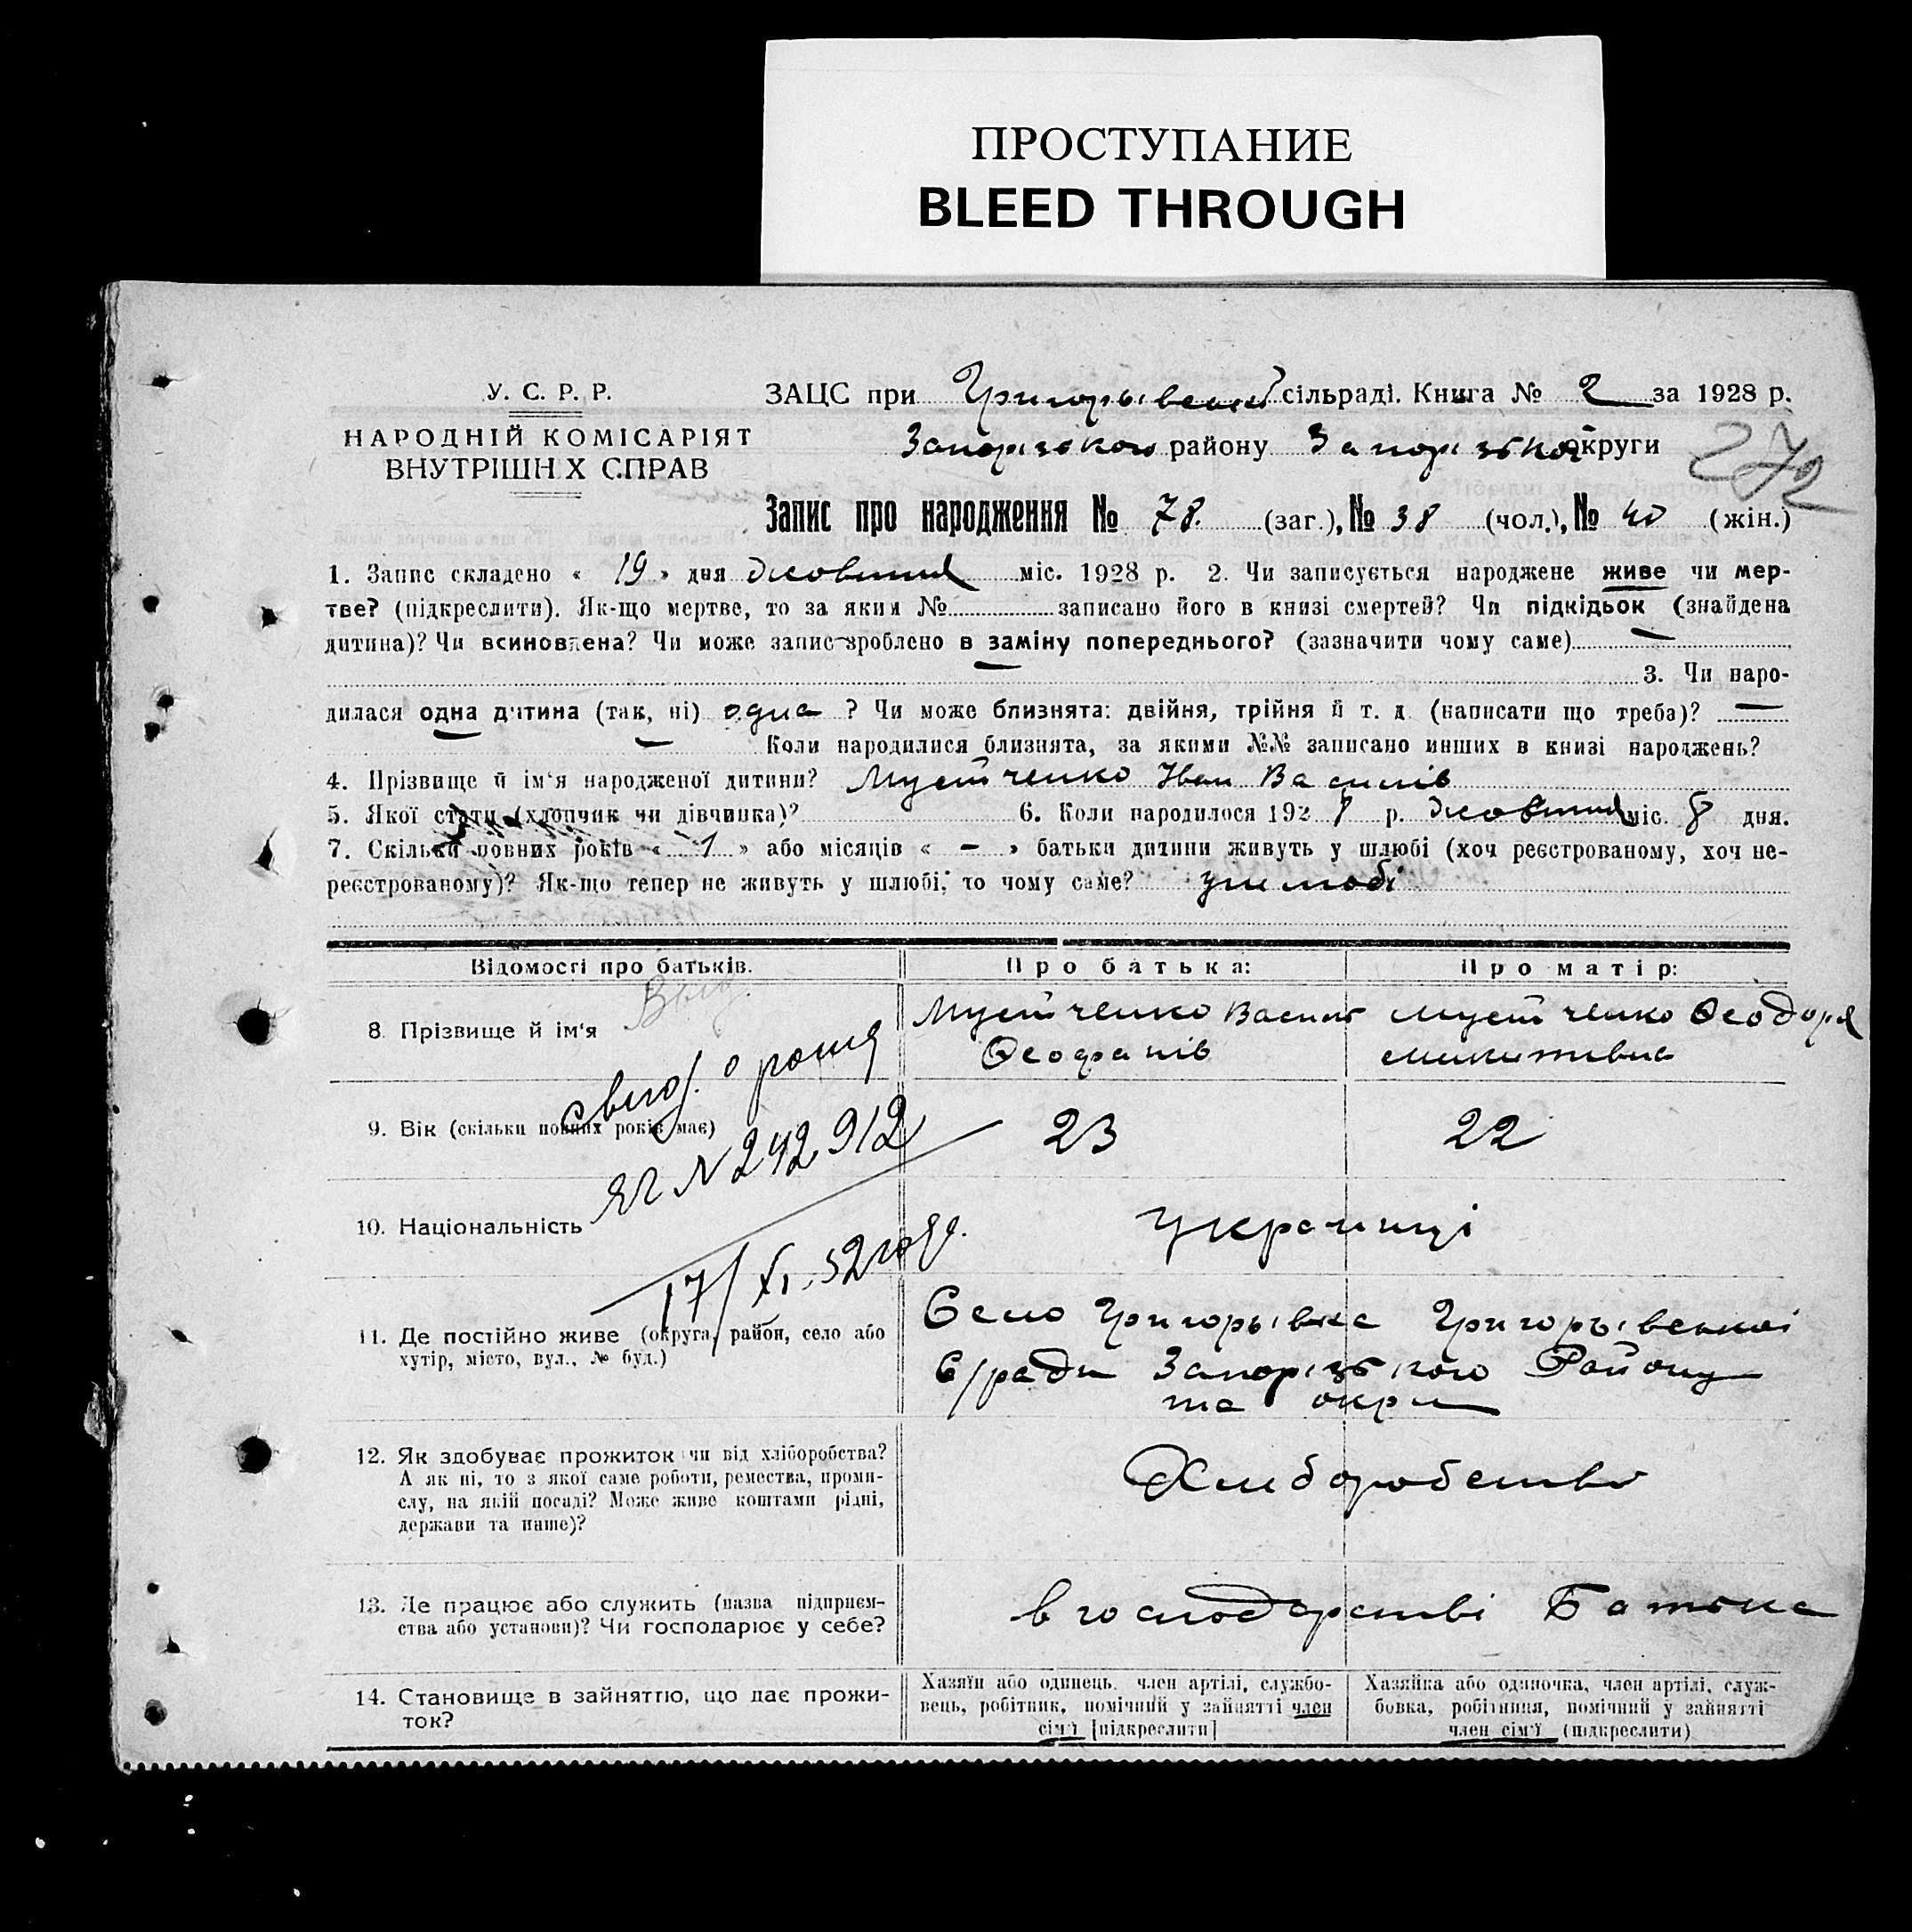 ПРОСТУПАНИЕ
BLEED THROUGH
У. С. Р. Р.
НАРОДНІЙ КОМІСАРІЯТ
ВНУТРІШН Х СПРАВ
ЗАЦС при Григорьівській сільраді. Книга № 2 за 1928 р.
Запорізького району Запорізької округи
272
Запис про народження № 78. (заг.), № 38 (чол.), № 40 (жін.)
1. Запис складено « 19 » дня жовтня міс. 1928 р. 2. Чи записується народжене живе чи мер-
тве? (підкреслити). Як-що мертве, то за яким № записано його в книзі смертей? Чи підкідьок (знайдена
дитина)? Чи всиновлена? Чи може запис зроблено в заміну попереднього? (зазначити чому саме)
3. Чи наро-
дилася одна дитина (так, ні) одна ? Чи може близнята: двійня, трійня й т. д. (написати що треба)? —
Коли народилися близнята, за якими №№ записано инших в книзі народжень?
4. Прізвище й ім'я народженої дитини? Мустченко Іван Василів
5. Якої стати (хлопчик чи дівчинка)? 6. Коли народилося 192 8 р. жовтня міс. 8 дня.
7. Скільки повних років « 1 » або місяців « — » батьки дитини живуть у шлюбі (хоч реєстрованому, хоч не-
реєстрованому)? Як-що тепер не живуть у шлюбі, то чому саме? у шлюбі
Відомості про батьків.
Про батька:
Про матір:
8. Прізвище й ім'я
Мустченко Василь
Феофанів
Мустченко Феодора
Микитівна
свид. о рожд
ЯГ № 242912
17/XI.52 года.
9. Вік (скільки повних років має)
23
22
10. Національність
Українці
11. Де постійно живе (округа, район, село або
хутір, місто, вул., № буд.)
Село Григорьівка Григорьівської
С/ради Запорізького Району
та окри
12. Як здобуває прожиток чи від хліборобства?
А як ні, то з якої саме роботи, ремества, проми-
слу, на якій посаді? Може живе коштами рідні,
держави та инше)?
Хлиборобство
13. Де працює або служить (назва підприєм-
ства або установи)? Чи господарює у себе?
в господарстві Батька
14. Становище в зайняттю, що дає прожи-
ток?
Хазяїн або одинець, член артілі, службо-
вець, робітник, помічний у зайнятті член
сім'ї [підкреслити]
Хазяйка або одиночка, член артілі, служ-
бовка, робітниця, помічний у зайнятті
член сім'ї (підкреслити)